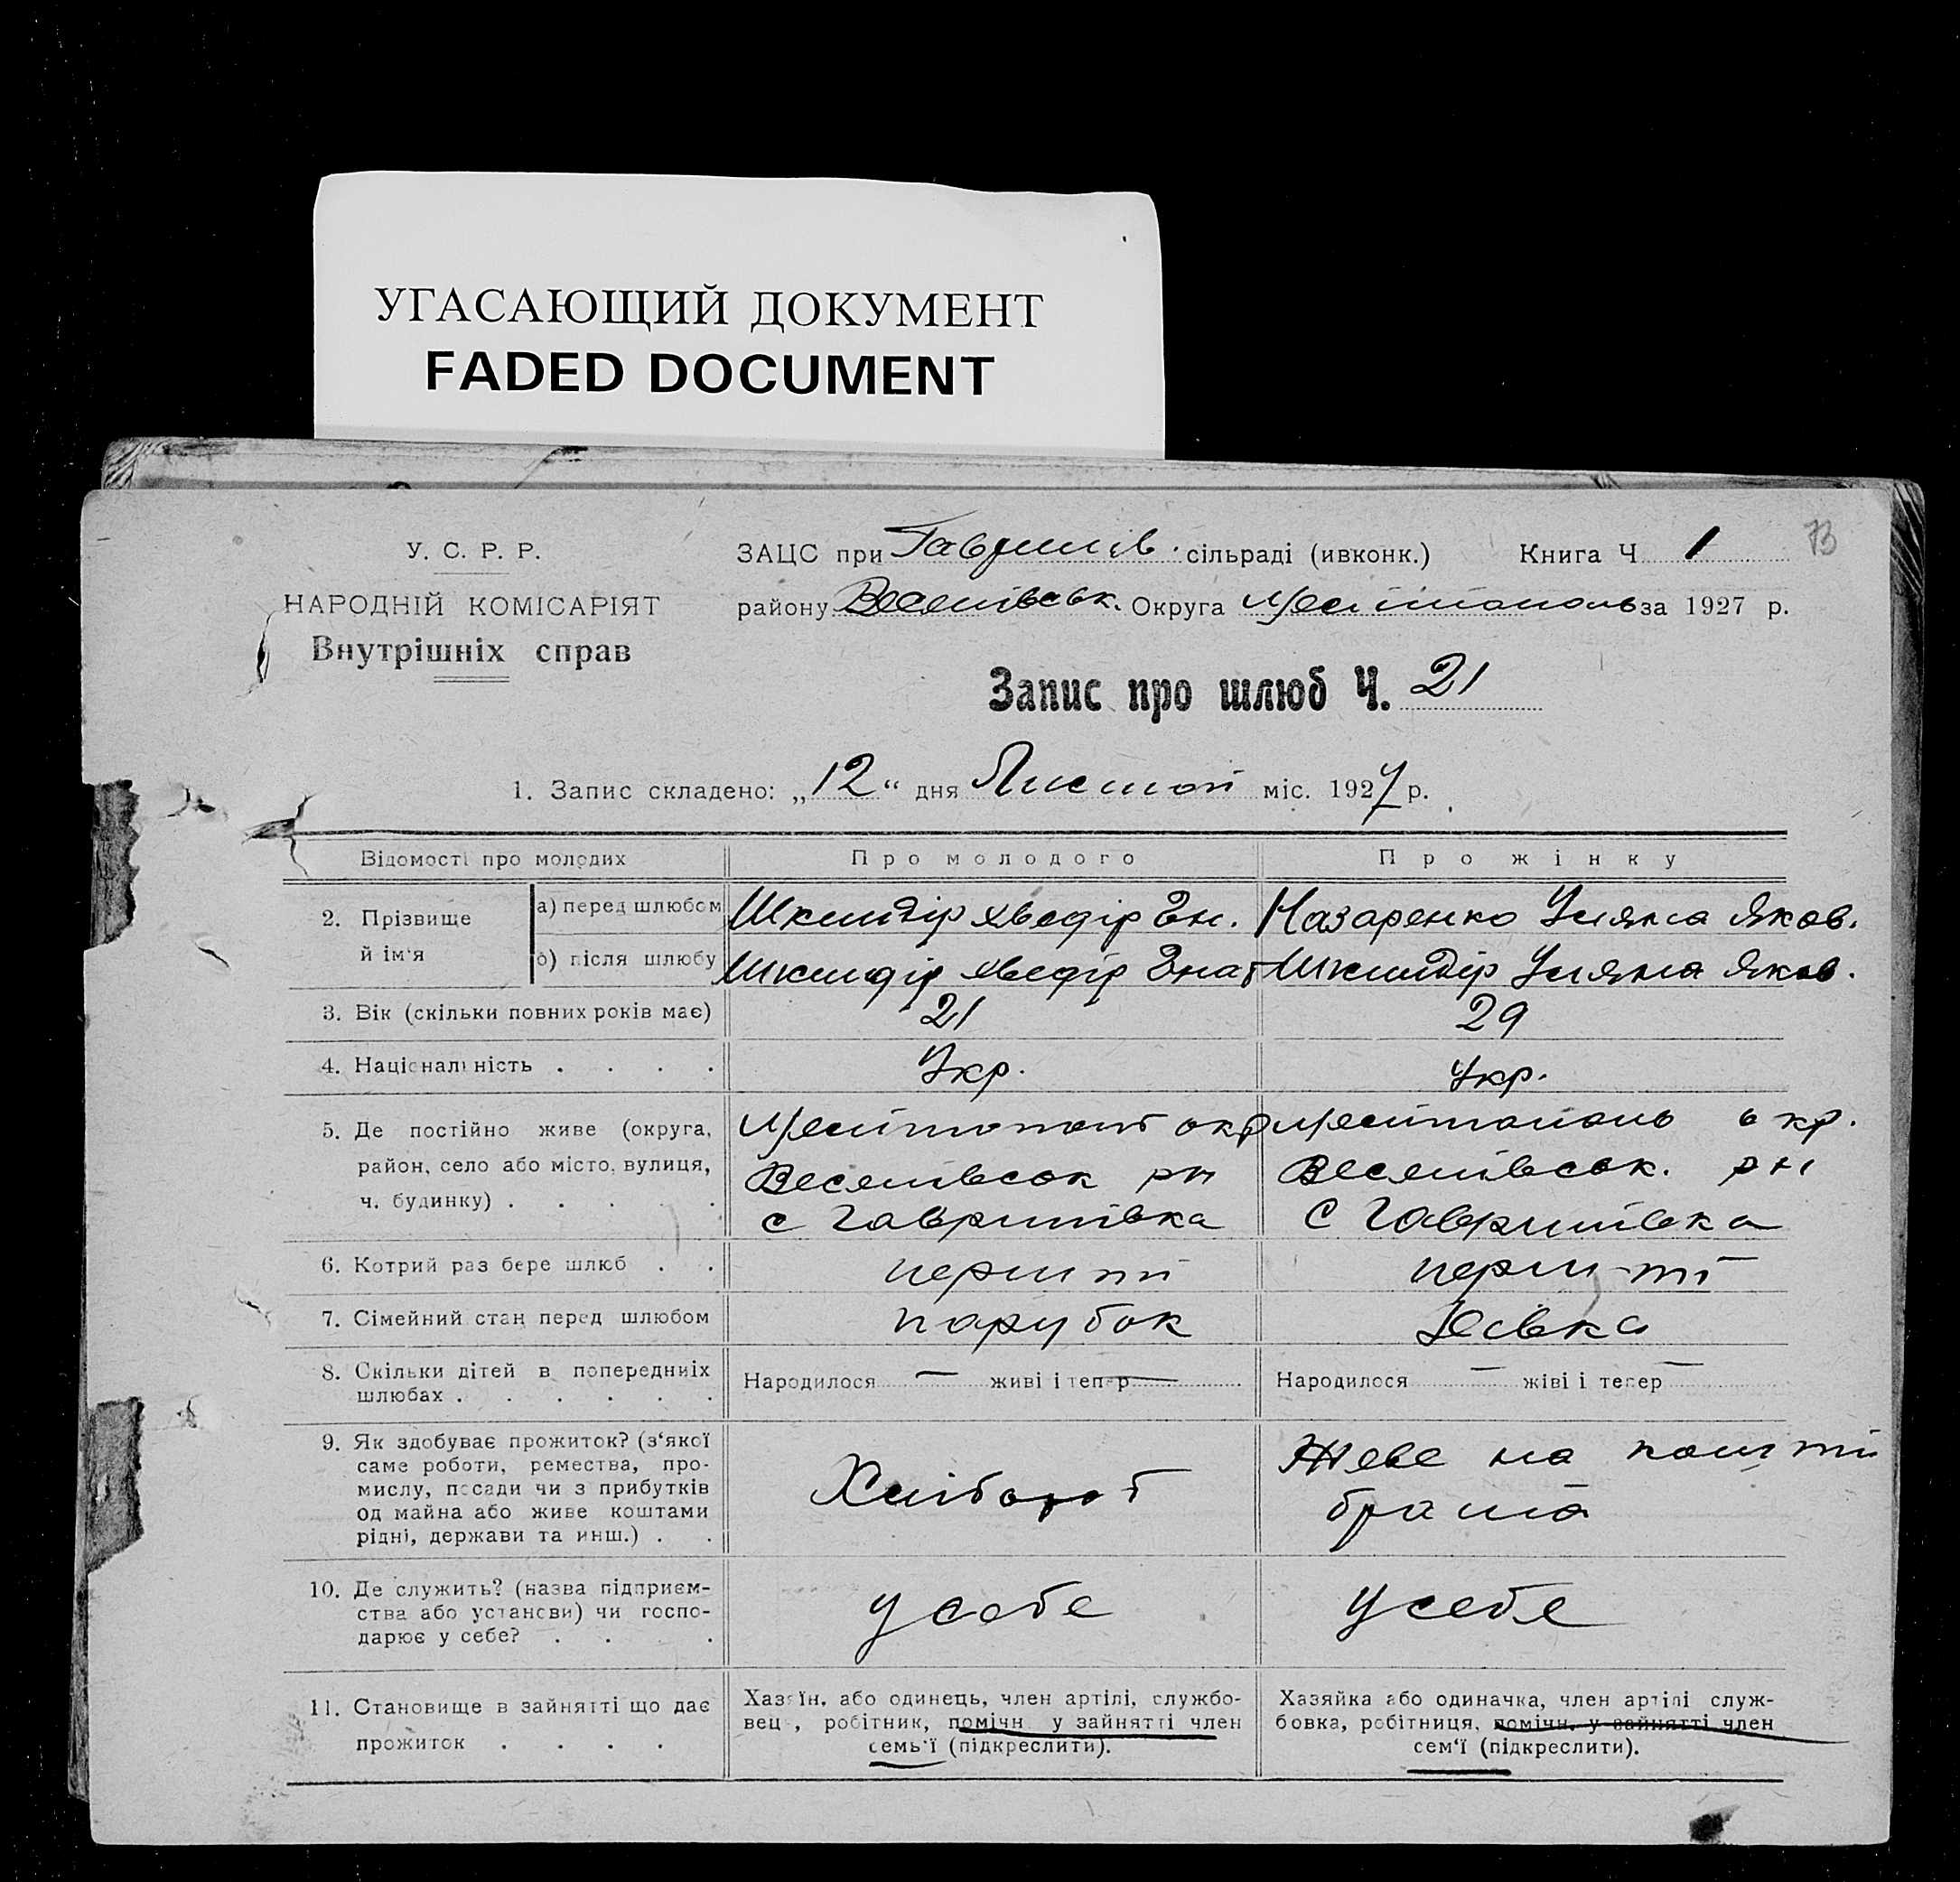 УГАСАЮЩИЙ ДОКУМЕНТ
FADED DOCUMENT
У. С. Р. Р.
НАРОДНІЙ КОМІСАРІЯТ
Внутрішніх справ
ЗАЦС при Гаврилів. сільраді (ивконк.) Книга Ч 1
73
району Веселівськ. Округа Мелітополь за 1927 р.
Запис про шлюб Ч. 21
1. Запис складено: „12“ дня Листоп міс. 1927 р.
Відомості про молодих Про молодого Про жінку
2. Прізвище й ім'я
а) перед шлюбом Хведір Гн. Назаренко Уляна Яков.
б) після шлюбу Хведір Гнат Уляна Яков.
3. Вік (скільки повних років має) 21 29
4. Національність . . . . Укр. Укр.
5. Де постійно живе (округа, район, село або місто, вулиця, ч. будинку) . . . .
Мелітопол окр Мелітополь окр.
Веселівськ рн Веселівськ. рн
с Гаврилівка с Гаврилівка
6. Котрий раз бере шлюб . . перший
7. Сімейний стан перед шлюбом парубок Дівка
8. Скільки дітей в попередниіх шлюбах . . . . . .
Народилося — живі і тепер — Народилося — жіві і тепер —
9. Як здобуває прожиток? (з'якої
саме роботи, ремества, про-
мислу, посади чи з прибутків
од майна або живе коштами
рідні, держави та инш.) . .
Хлібороб Живе на кошти
брата
10. Де служить? (назва підприєм-
ства або установи) чи госпо-
дарює у себе? . . .
у себе у себе
11. Становище в зайнятті що дає
прожиток . . . .
Хазяїн, або одинець, член артілі, службо-
вець, робітник, помічн у зайнятті член
семь'ї (підкреслити).
Хазяйка або одиначка, член артілі служ-
бовка, робітниця, помічн. у зайнятті член
сем'ї (підкреслити).